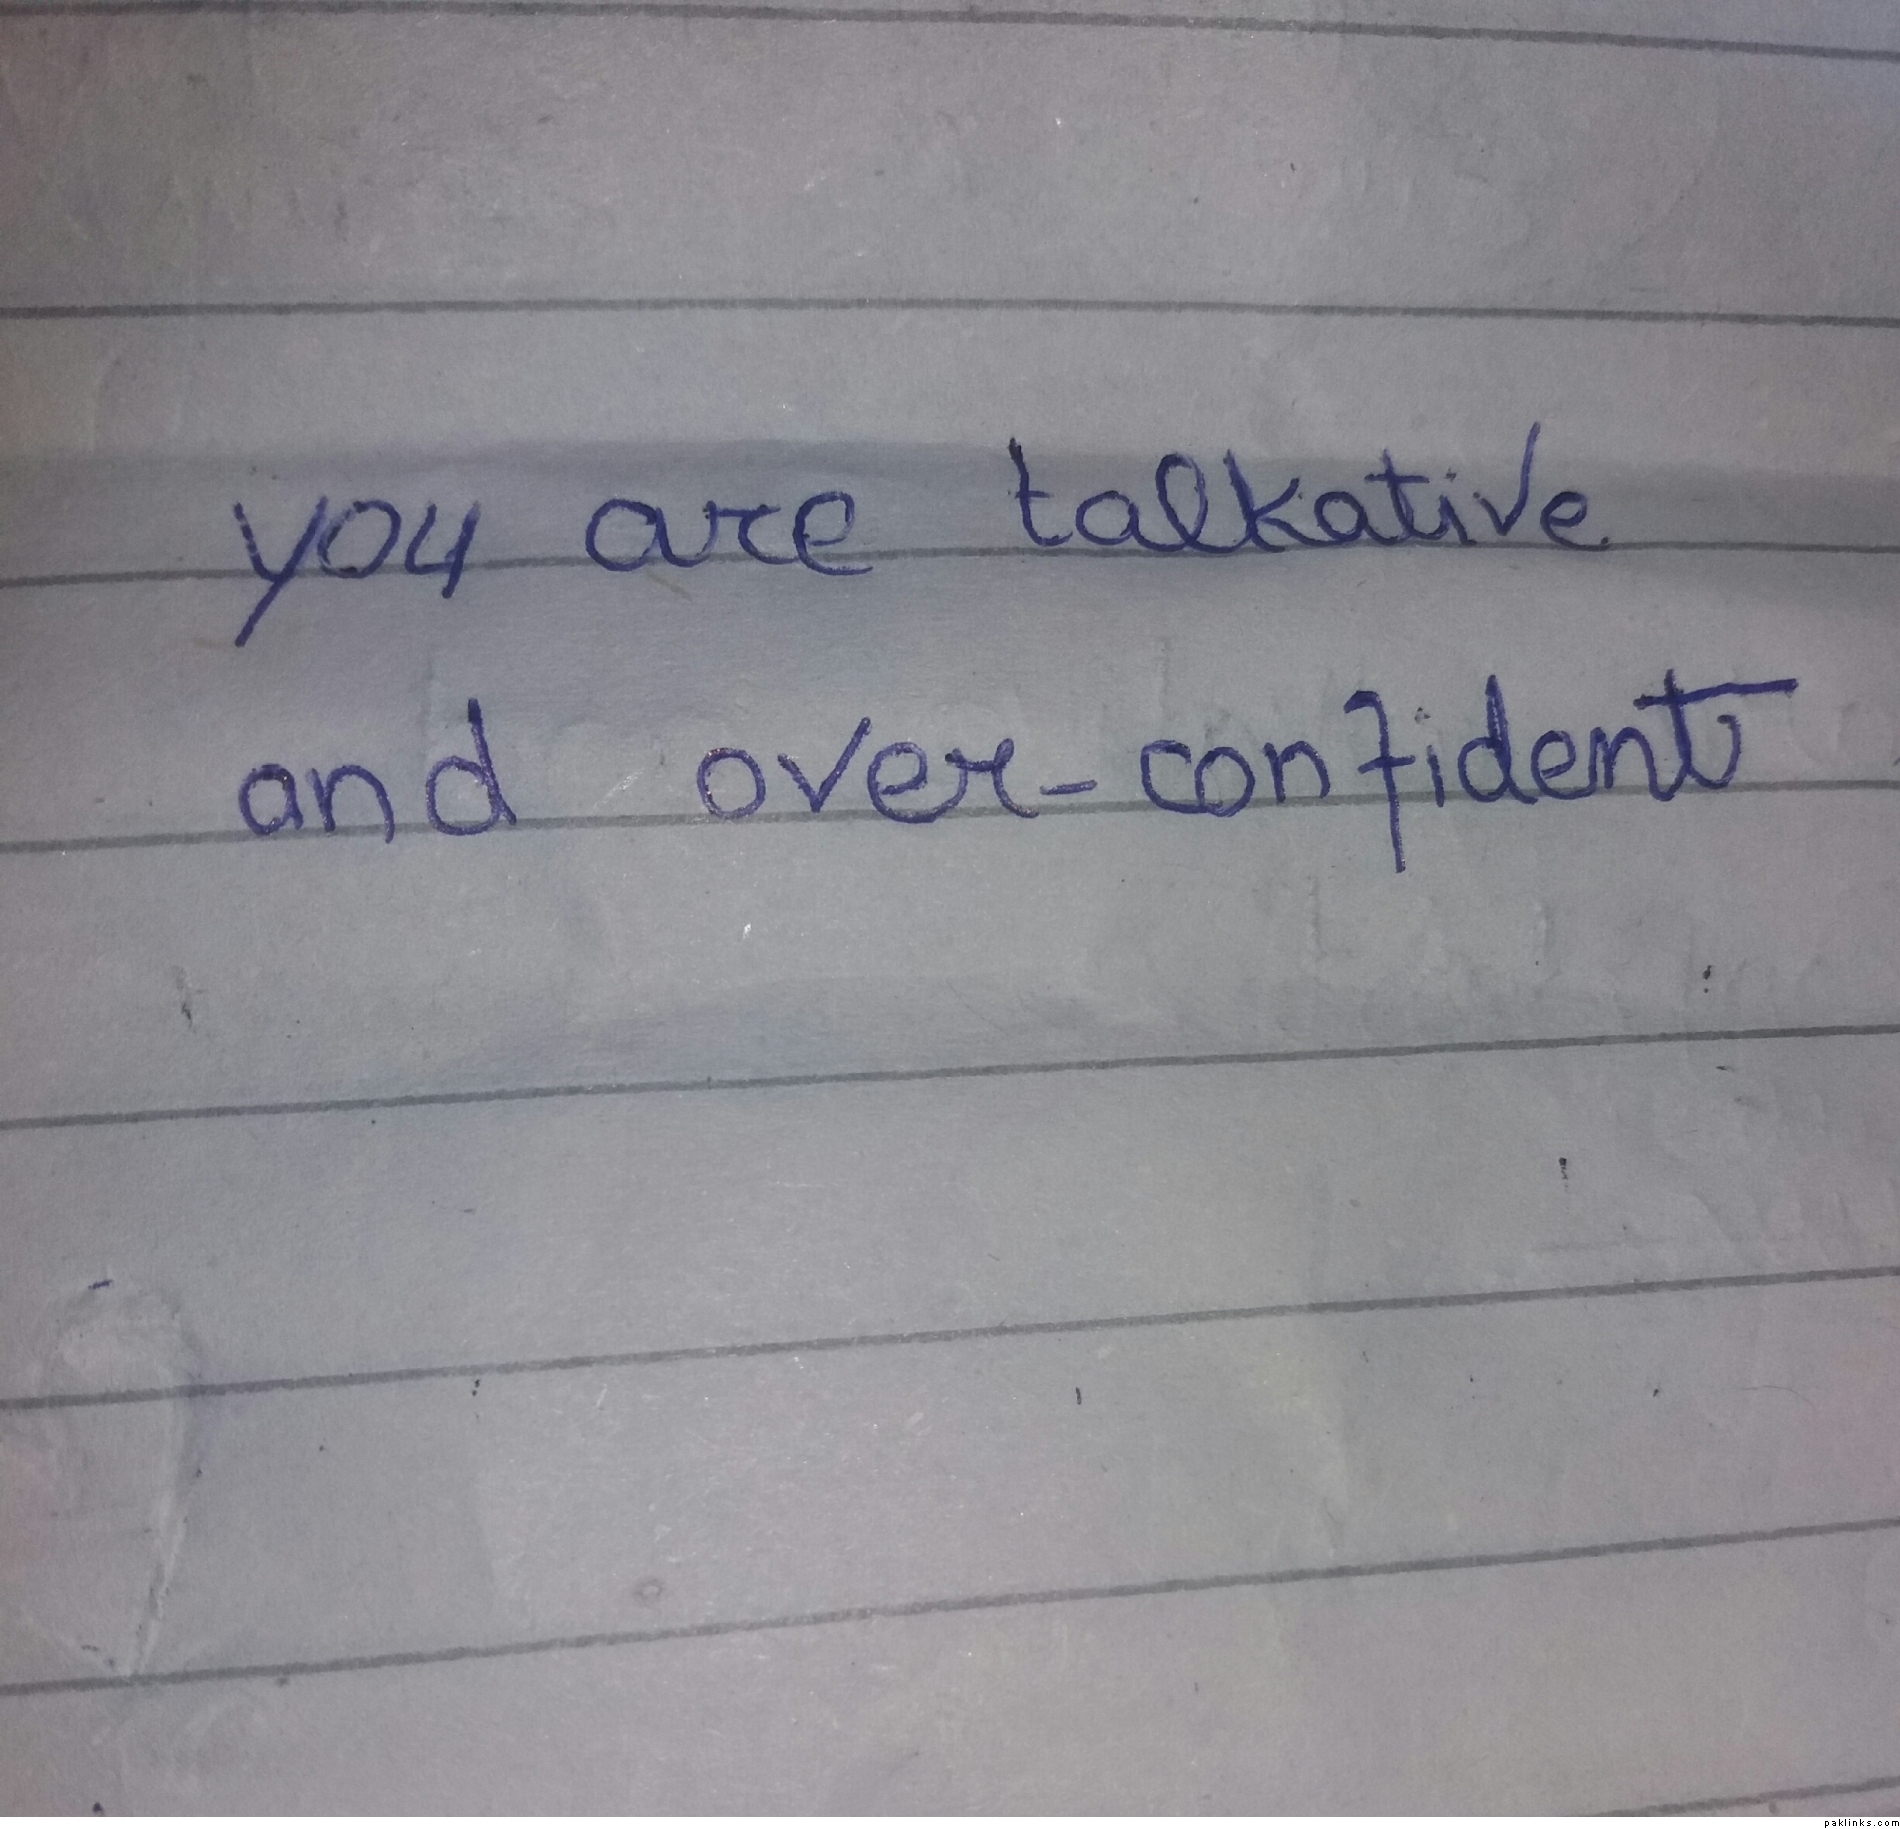 you are talkative
and over-confident
paklinks.com